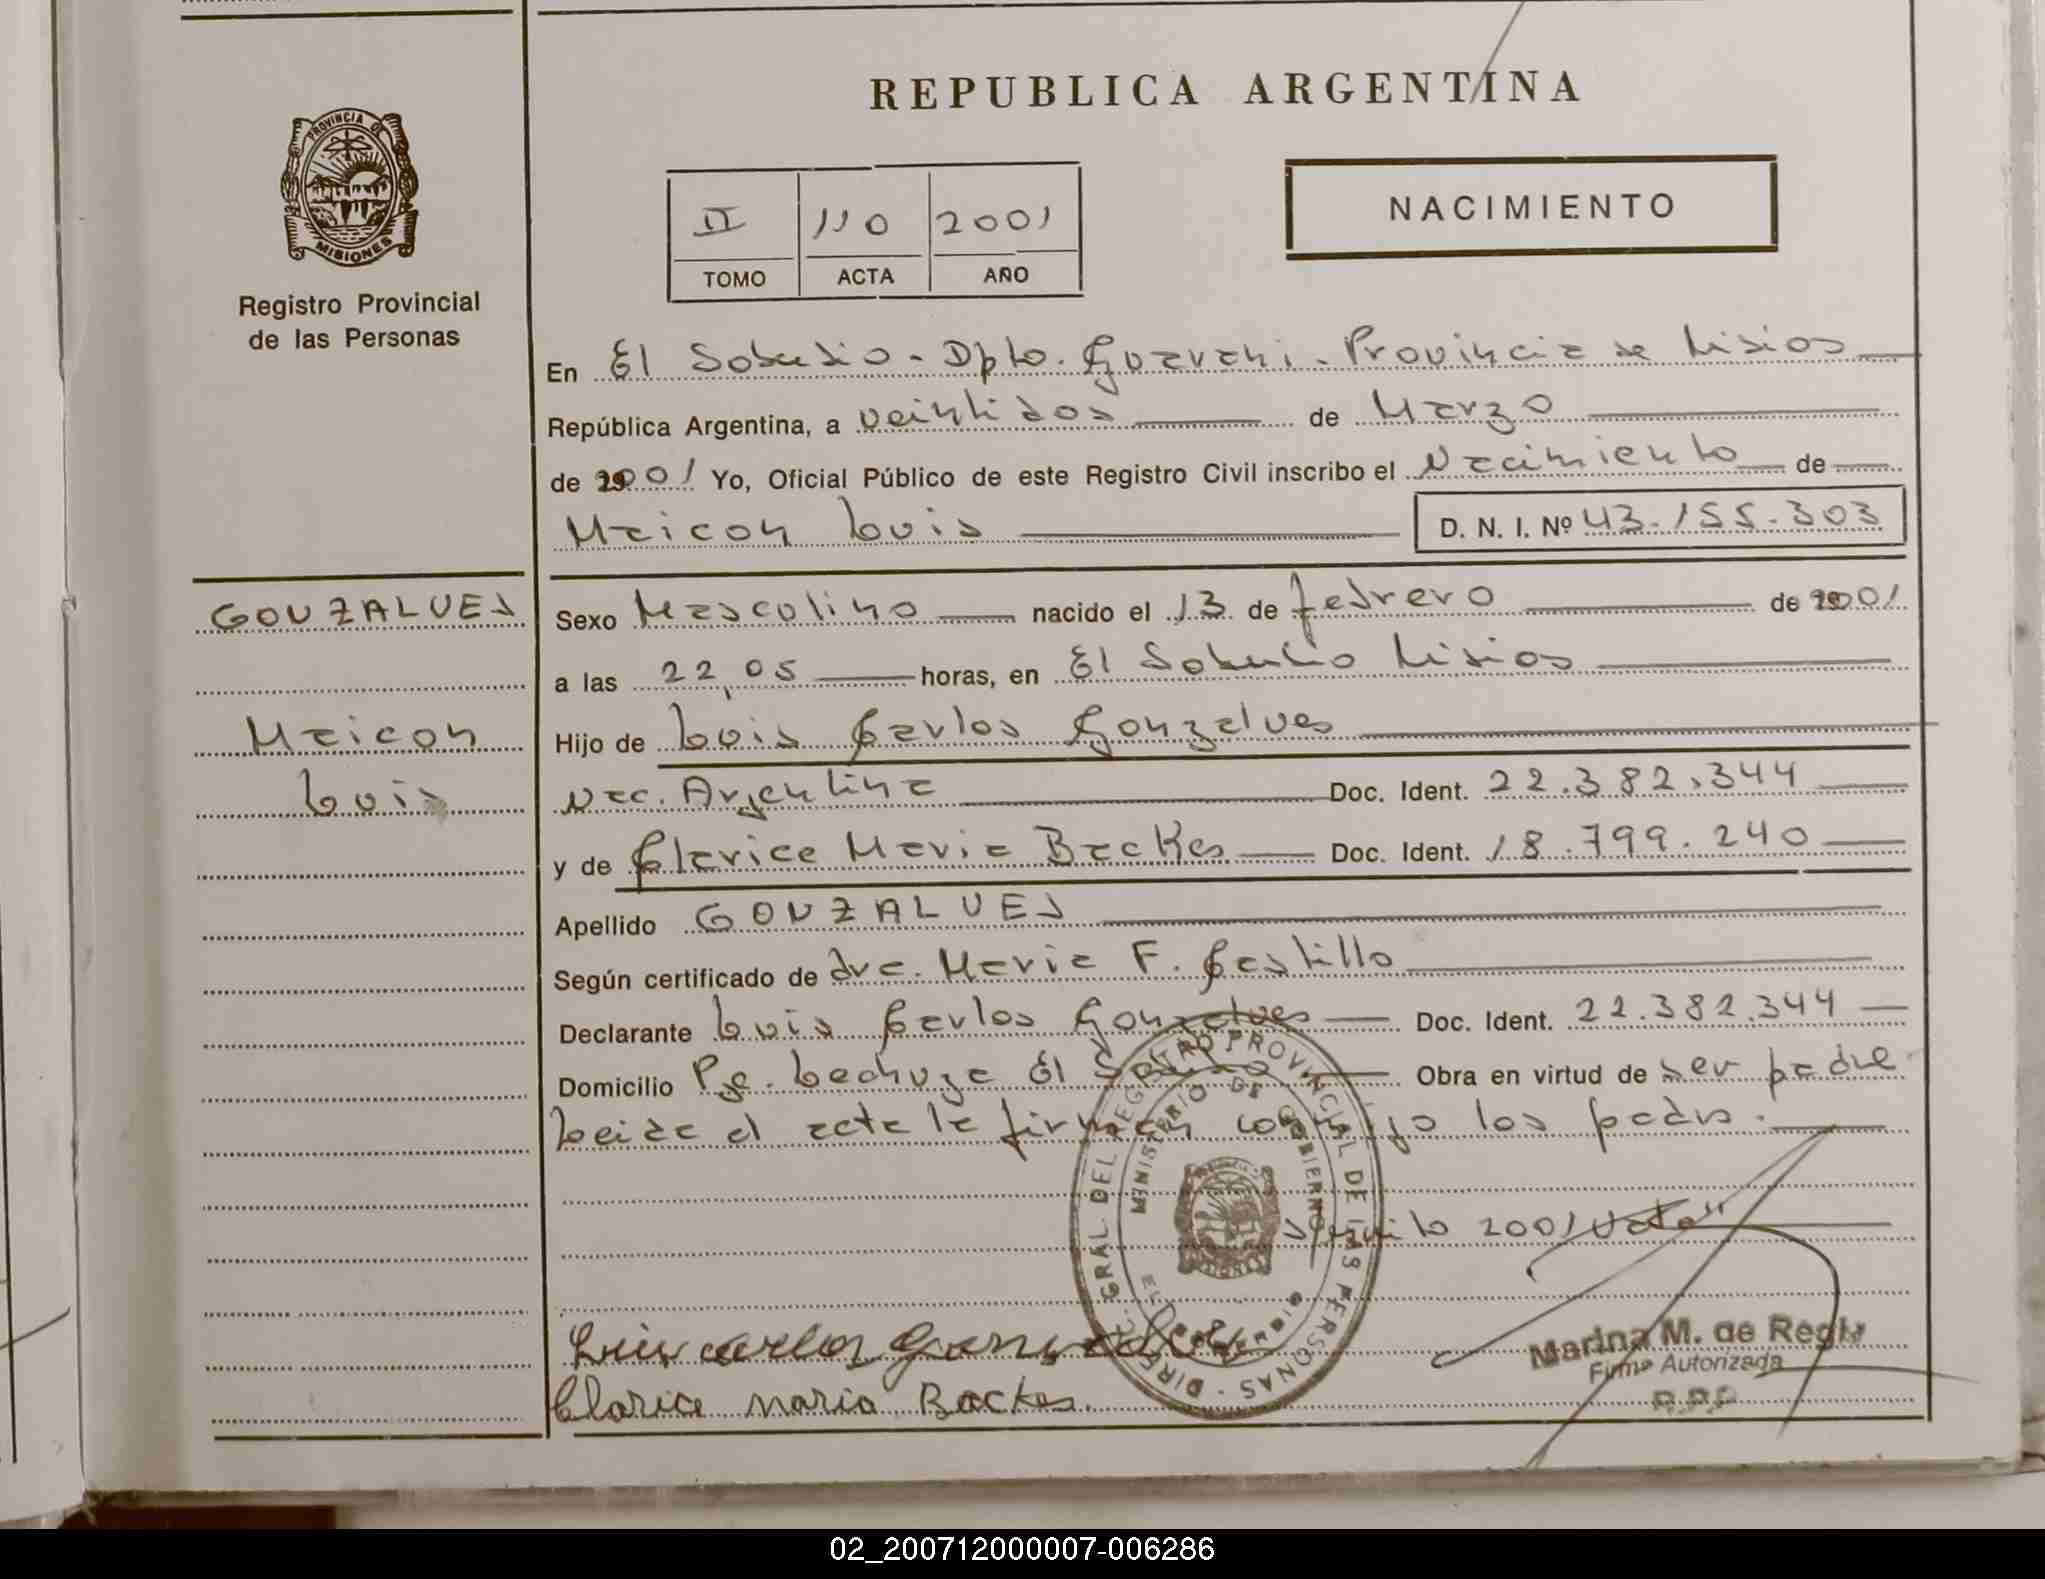 REPUBLICA ARGENTINA
PROVINCIA DE
MISIONES
Registro Provincial
de las Personas
II 110 2001
TOMO ACTA AÑO
NACIMIENTO
En El Soberbio - Dpto. Guarani - Provincia de Misios
República Argentina, a veintidos de Marzo
de 2001 Yo, Oficial Público de este Registro Civil inscribo el Nacimiento de
Maicon Luis D. N. I. Nº 43.155.303
GONZALVES
Maicon
Luis
Sexo Masculino nacido el 13 de febrero de 2001
a las 22,05 horas, en El Soberbio Misios
Hijo de Luis Carlos Gonzalves
Nac. Argentina Doc. Ident. 22.382.344
y de Clarice Maria Backes Doc. Ident. 18.799.240
Apellido GONZALVES
Según certificado de dra. Maria F. Castillo
Declarante Luis Carlos Gonzalves Doc. Ident. 22.382.344
Domicilio Pje. Lechuza El Soberbio Obra en virtud de ser padre
Leida el acta la firman conmigo los padres.
2001
DIREC. GRAL DEL REGISTRO PROVINCIAL DE LAS PERSONAS
MINISTERIO DE GOBIERNO
Luis Carlos
Clarice Maria Backes.
Marina M. de Regly
Firma Autorizada
R.P.P.
02_200712000007-006286